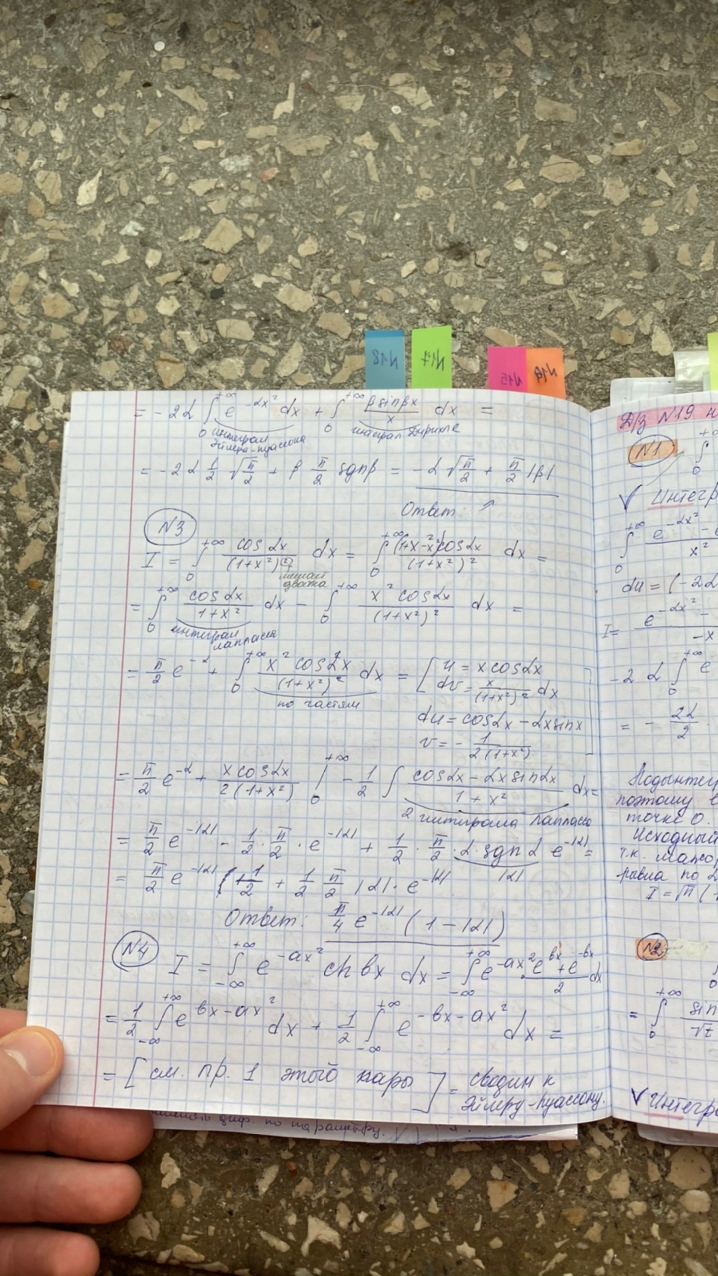 = -2α ∫₀^{+∞} e^{-αx²} dx + ∫₀^{+∞} β sinβx / x dx =
интеграл Эйлера-Пуассона
интеграл Дирихле
= -2α 1/2 √(π/2) + β π/2 sgnβ = -α √(π/2) + π/2 |β|
Ответ ↑
N3
I = ∫₀^{+∞} cosαx / (1+x²)² dx = ∫₀^{+∞} (1+x²-x²)cosαx / (1+x²)² dx =
= ∫₀^{+∞} cosαx / (1+x²) dx - ∫₀^{+∞} x² cosαx / (1+x²)² dx =
интеграл Лапласа
= π/2 e^{-α} + ∫₀^{+∞} x² cosαx / (1+x²)² dx = [ u = x cosαx
dv = x / (1+x²)² dx
по частям
du = cosαx - αx sinx
v = - 1 / 2(1+x²) ]
= π/2 e^{-α} + x cosαx / 2(1+x²) |₀^{+∞} - 1/2 ∫ (cosαx - αx sinαx) / (1+x²) dx =
2 интеграла Лапласа
= π/2 e^{-|α|} - 1/2 · π/2 · e^{-|α|} + 1/2 · π/2 · α sgnα e^{-|α|} =
|α|
= π/2 e^{-|α|} (1 - 1/2 + 1/2 π/2 |α| · e^{-|α|}
Ответ: π/4 e^{-|α|} (1 - |α|)
N4
I = ∫_{-∞}^{+∞} e^{-ax²} ch bx dx = ∫_{-∞}^{+∞} e^{-ax²} (e^{bx} + e^{-bx}) / 2 dx
= 1/2 ∫_{-∞}^{+∞} e^{bx-ax²} dx + 1/2 ∫_{-∞}^{+∞} e^{-bx-ax²} dx =
= [см. пр. 1 этой пары] = сводим к
Эйлеру-Пуассону.
N18
N17
N15
N16
Д/з N19
N1
∫₀^{+∞}
√ Интегр
∫₀^{+∞} e^{-αx²} - / x²
du = (-2α
I = e^{-αx²} - / -x
-2α ∫₀ e
= - 2α / 2
Подынтег
поэтому в
точке 0.
Исходный
т.к. мажо
равна по α
I = √π (
N2
= ∫₀^{+∞} sin / √t
√ Интегр